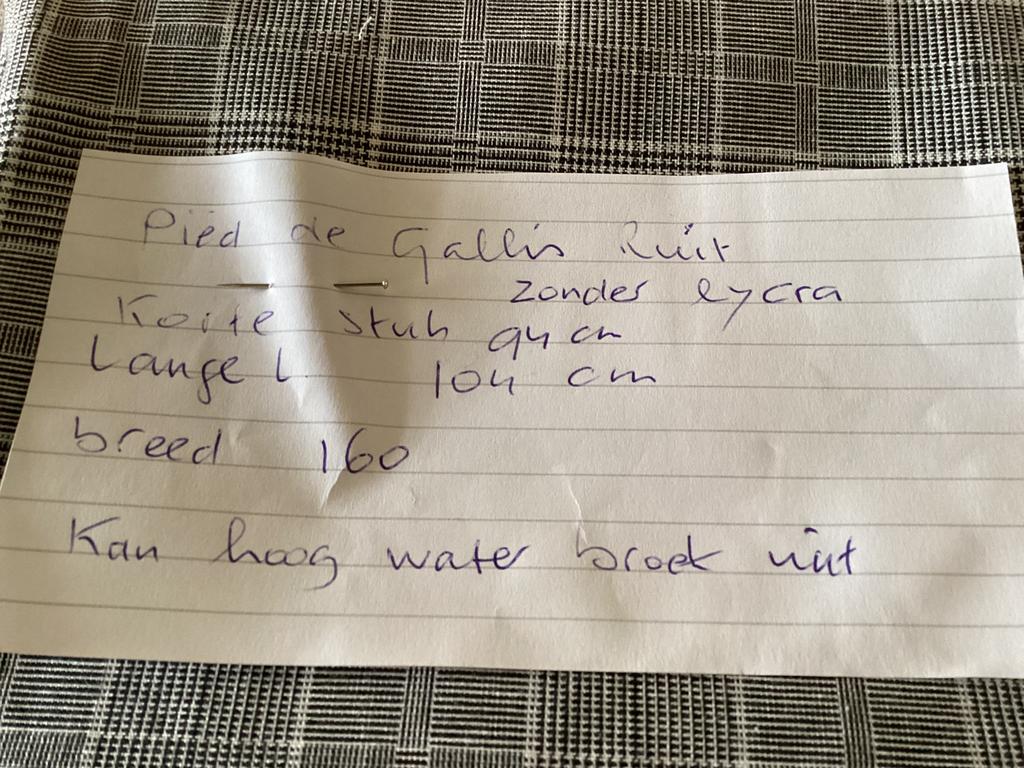 Pied de Gallis Ruit
zonder lycra
Korte stuk 94 cm
Lange l 104 cm
breed 160
Kan hoog water broek uit